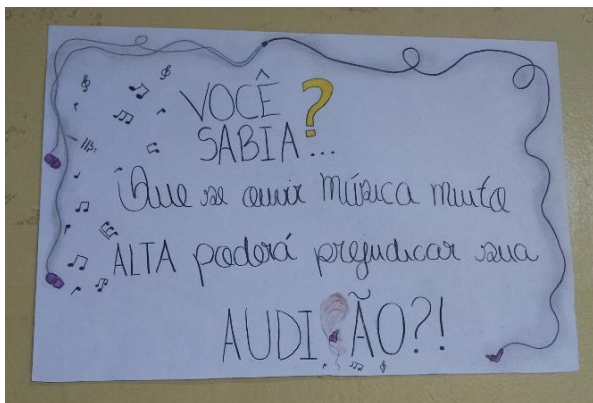 VOCÊ ?
SABIA...
Que se ouvir música muito
ALTA poderá prejudicar sua
AUDIÇÃO?!